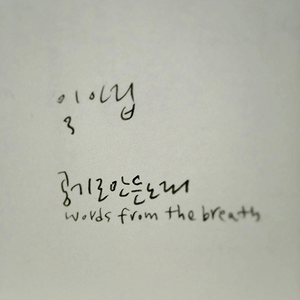 일이럽
공기로만든노래
words from the breath